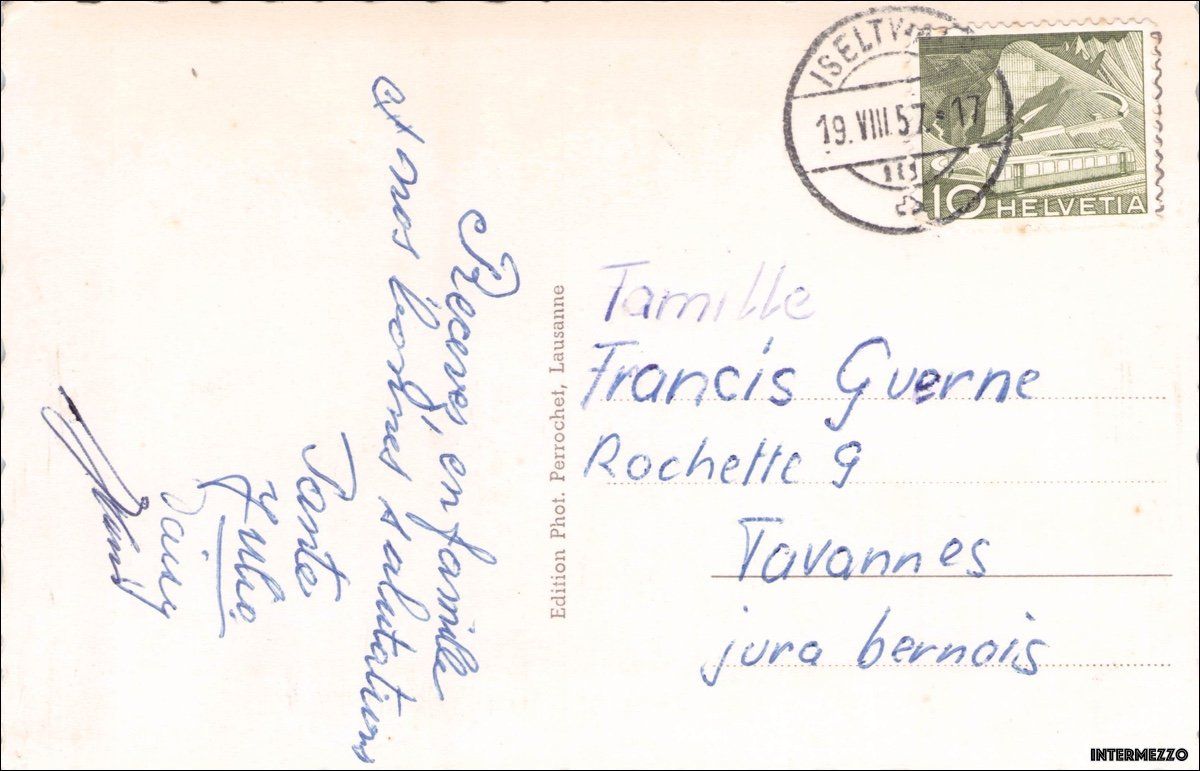 Recevez, en famille
et nos bonnes salutations
Tante
Julie
Edition Phot. Perrochet, Lausanne
ISELTWALD
19.VIII.57.-17
10 HELVETIA
Famille
Francis Guerne
Rochette 9
Tavannes
jura bernois
INTERMEZZO